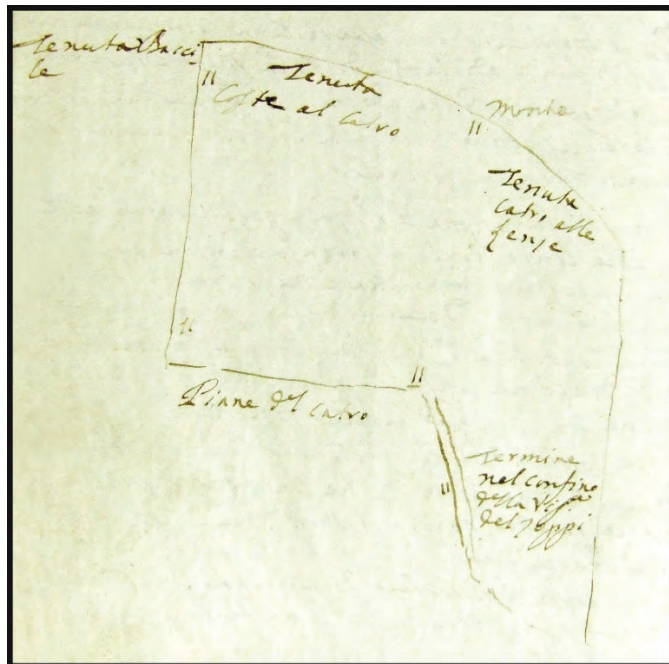 Tenuta Bacci-
le
Tenuta
Coste al Calvo
Monte
Tenuta
Calvi alle
Piane del Calvo
Termine
nel confine
della Vig.a
del